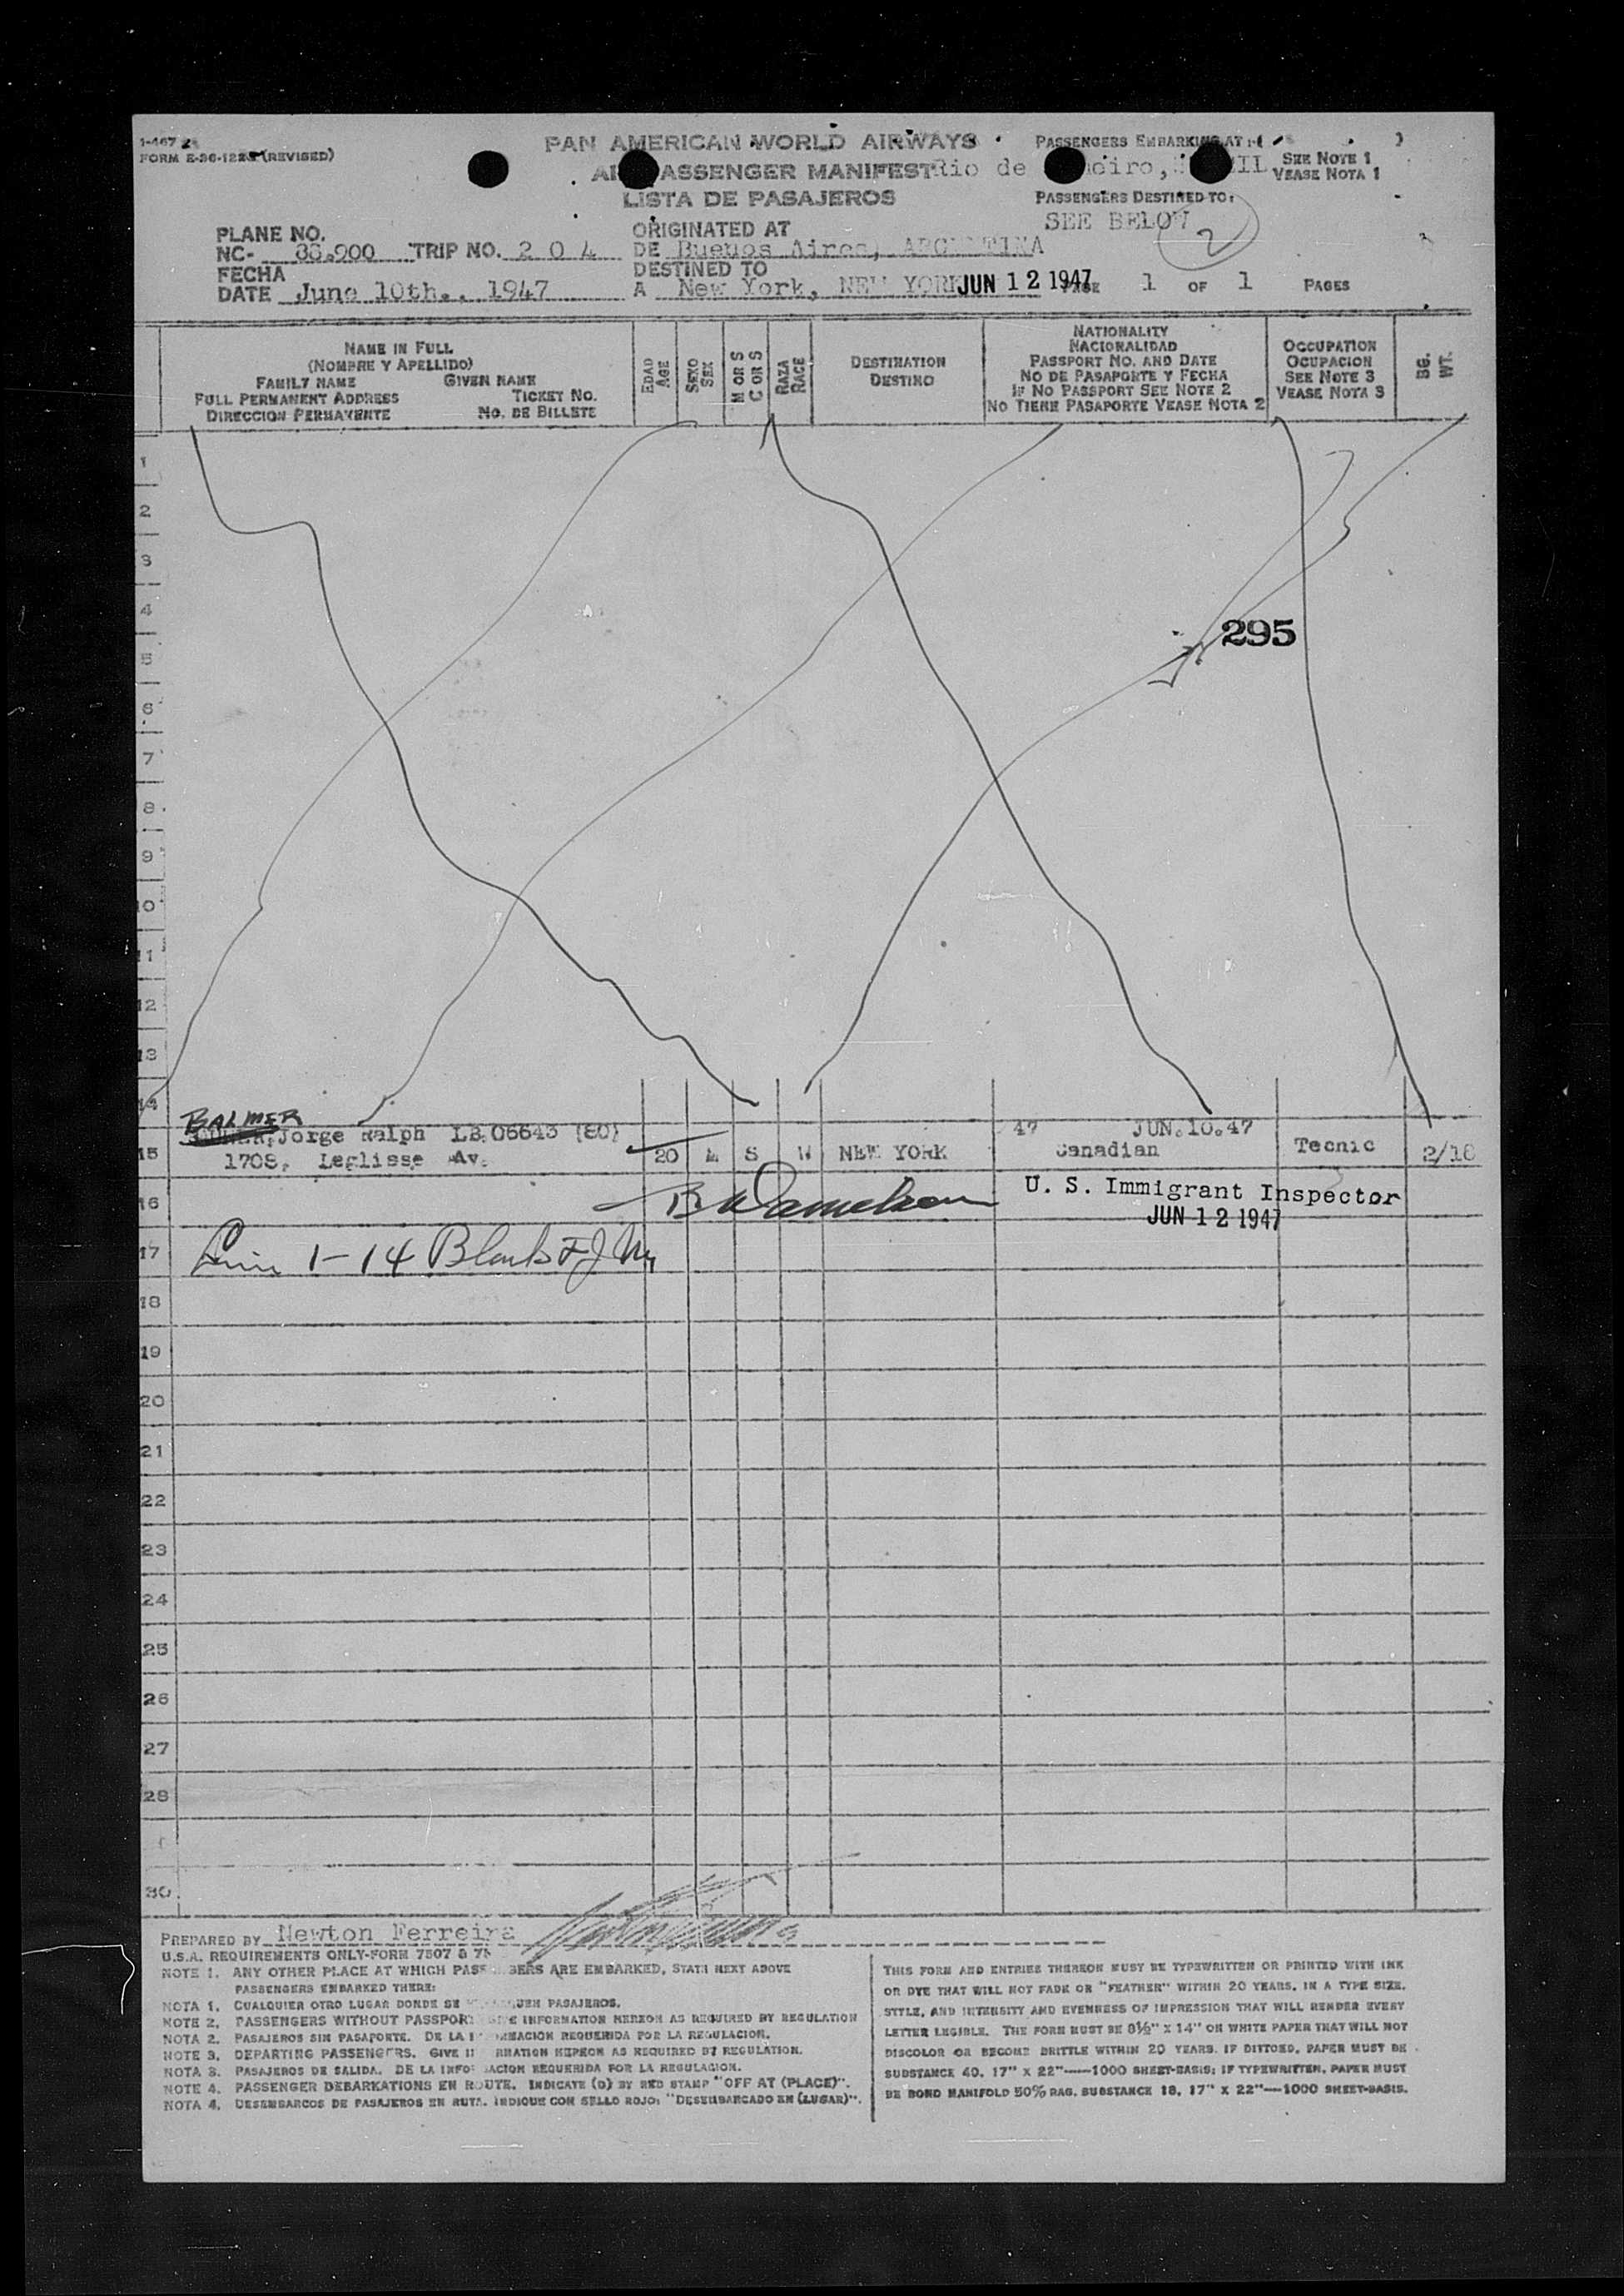 FORM E-36-122 (REVISED)
PAN AMERICAN WORLD AIRWAYS
PASSENGERS EMBARKING AT:
ASSENGER MANIFEST
Rio de
SEE NOTE 1
VEASE NOTA 1
LISTA DE PASAJEROS
PASSENGERS DESTINED TO:
SEE BELOW
2
PLANE NO.
NC- 88.900 TRIP NO. 2 0 4
ORIGINATED AT
DE Buenos Aires, ARGENTINA
FECHA
DATE June 10th., 1947
DESTINED TO
A New York, NEW YORK
JUN 12 1947
1 OF 1 PAGES
NAME IN FULL
(NOMBRE Y APELLIDO)
FAMILY NAME GIVEN NAME
FULL PERMANENT ADDRESS TICKET NO.
DIRECCION PERMANENTE NO. DE BILLETE
EDAD
AGE
SEXO
SEX
M OR S
C OR S
RAZA
RACE
DESTINATION
DESTINO
NATIONALITY
NACIONALIDAD
PASSPORT NO. AND DATE
NO DE PASAPORTE Y FECHA
IF NO PASSPORT SEE NOTE 2
NO TIENE PASAPORTE VEASE NOTA 2
OCCUPATION
OCUPACION
SEE NOTE 3
VEASE NOTA 3
BG.
WT.
1
2
3
4
295
5
6
7
8
9
10
11
12
13
14
BALMER
Jorge Ralph LB.06643 (80)
47 JUN.10.47
15 1708, Leglisse Av. 20 M S W NEW YORK Canadian Tecnic 2/18
16
U. S. Immigrant Inspector
JUN 12 1947
17 Line 1-14 Blank
18
19
20
21
22
23
24
25
26
27
28
30
PREPARED BY Newton Ferreira
U.S.A. REQUIREMENTS ONLY-FORM 7507 &
NOTE 1. ANY OTHER PLACE AT WHICH PASSENGERS ARE EMBARKED, STATE NEXT ABOVE
PASSENGERS EMBARKED THERE:
NOTA 1. CUALQUIER OTRO LUGAR DONDE SE PASAJEROS.
NOTE 2. PASSENGERS WITHOUT PASSPORT GIVE INFORMATION HEREON AS REQUIRED BY REGULATION
NOTA 2. PASAJEROS SIN PASAPORTE. DE LA INFORMACION REQUERIDA POR LA REGULACION.
NOTE 3. DEPARTING PASSENGERS. GIVE INFORMATION HEREON AS REQUIRED BY REGULATION.
NOTA 3. PASAJEROS DE SALIDA. DE LA INFORMACION REQUERIDA POR LA REGULACION.
NOTE 4. PASSENGER DEBARKATIONS EN ROUTE. INDICATE (D) BY RED STAMP "OFF AT (PLACE)".
NOTA 4. DESEMBARCOS DE PASAJEROS EN RUTA. INDIQUE CON SELLO ROJO: "DESEMBARCADO EN (LUGAR)".
THIS FORM AND ENTRIES THEREON MUST BE TYPEWRITTEN OR PRINTED WITH INK
OR DYE THAT WILL NOT FADE OR "FEATHER" WITHIN 20 YEARS, IN A TYPE SIZE,
STYLE, AND INTENSITY AND EVENNESS OF IMPRESSION THAT WILL RENDER EVERY
LETTER LEGIBLE. THE FORM MUST BE 8½" X 14" ON WHITE PAPER THAT WILL NOT
DISCOLOR OR BECOME BRITTLE WITHIN 20 YEARS. IF DITTOED, PAPER MUST BE
SUBSTANCE 40, 17" X 22"-----1000 SHEET-BASIS; IF TYPEWRITTEN, PAPER MUST
BE BOND MANIFOLD 50% RAG, SUBSTANCE 18, 17" X 22"---1000 SHEET-BASIS.